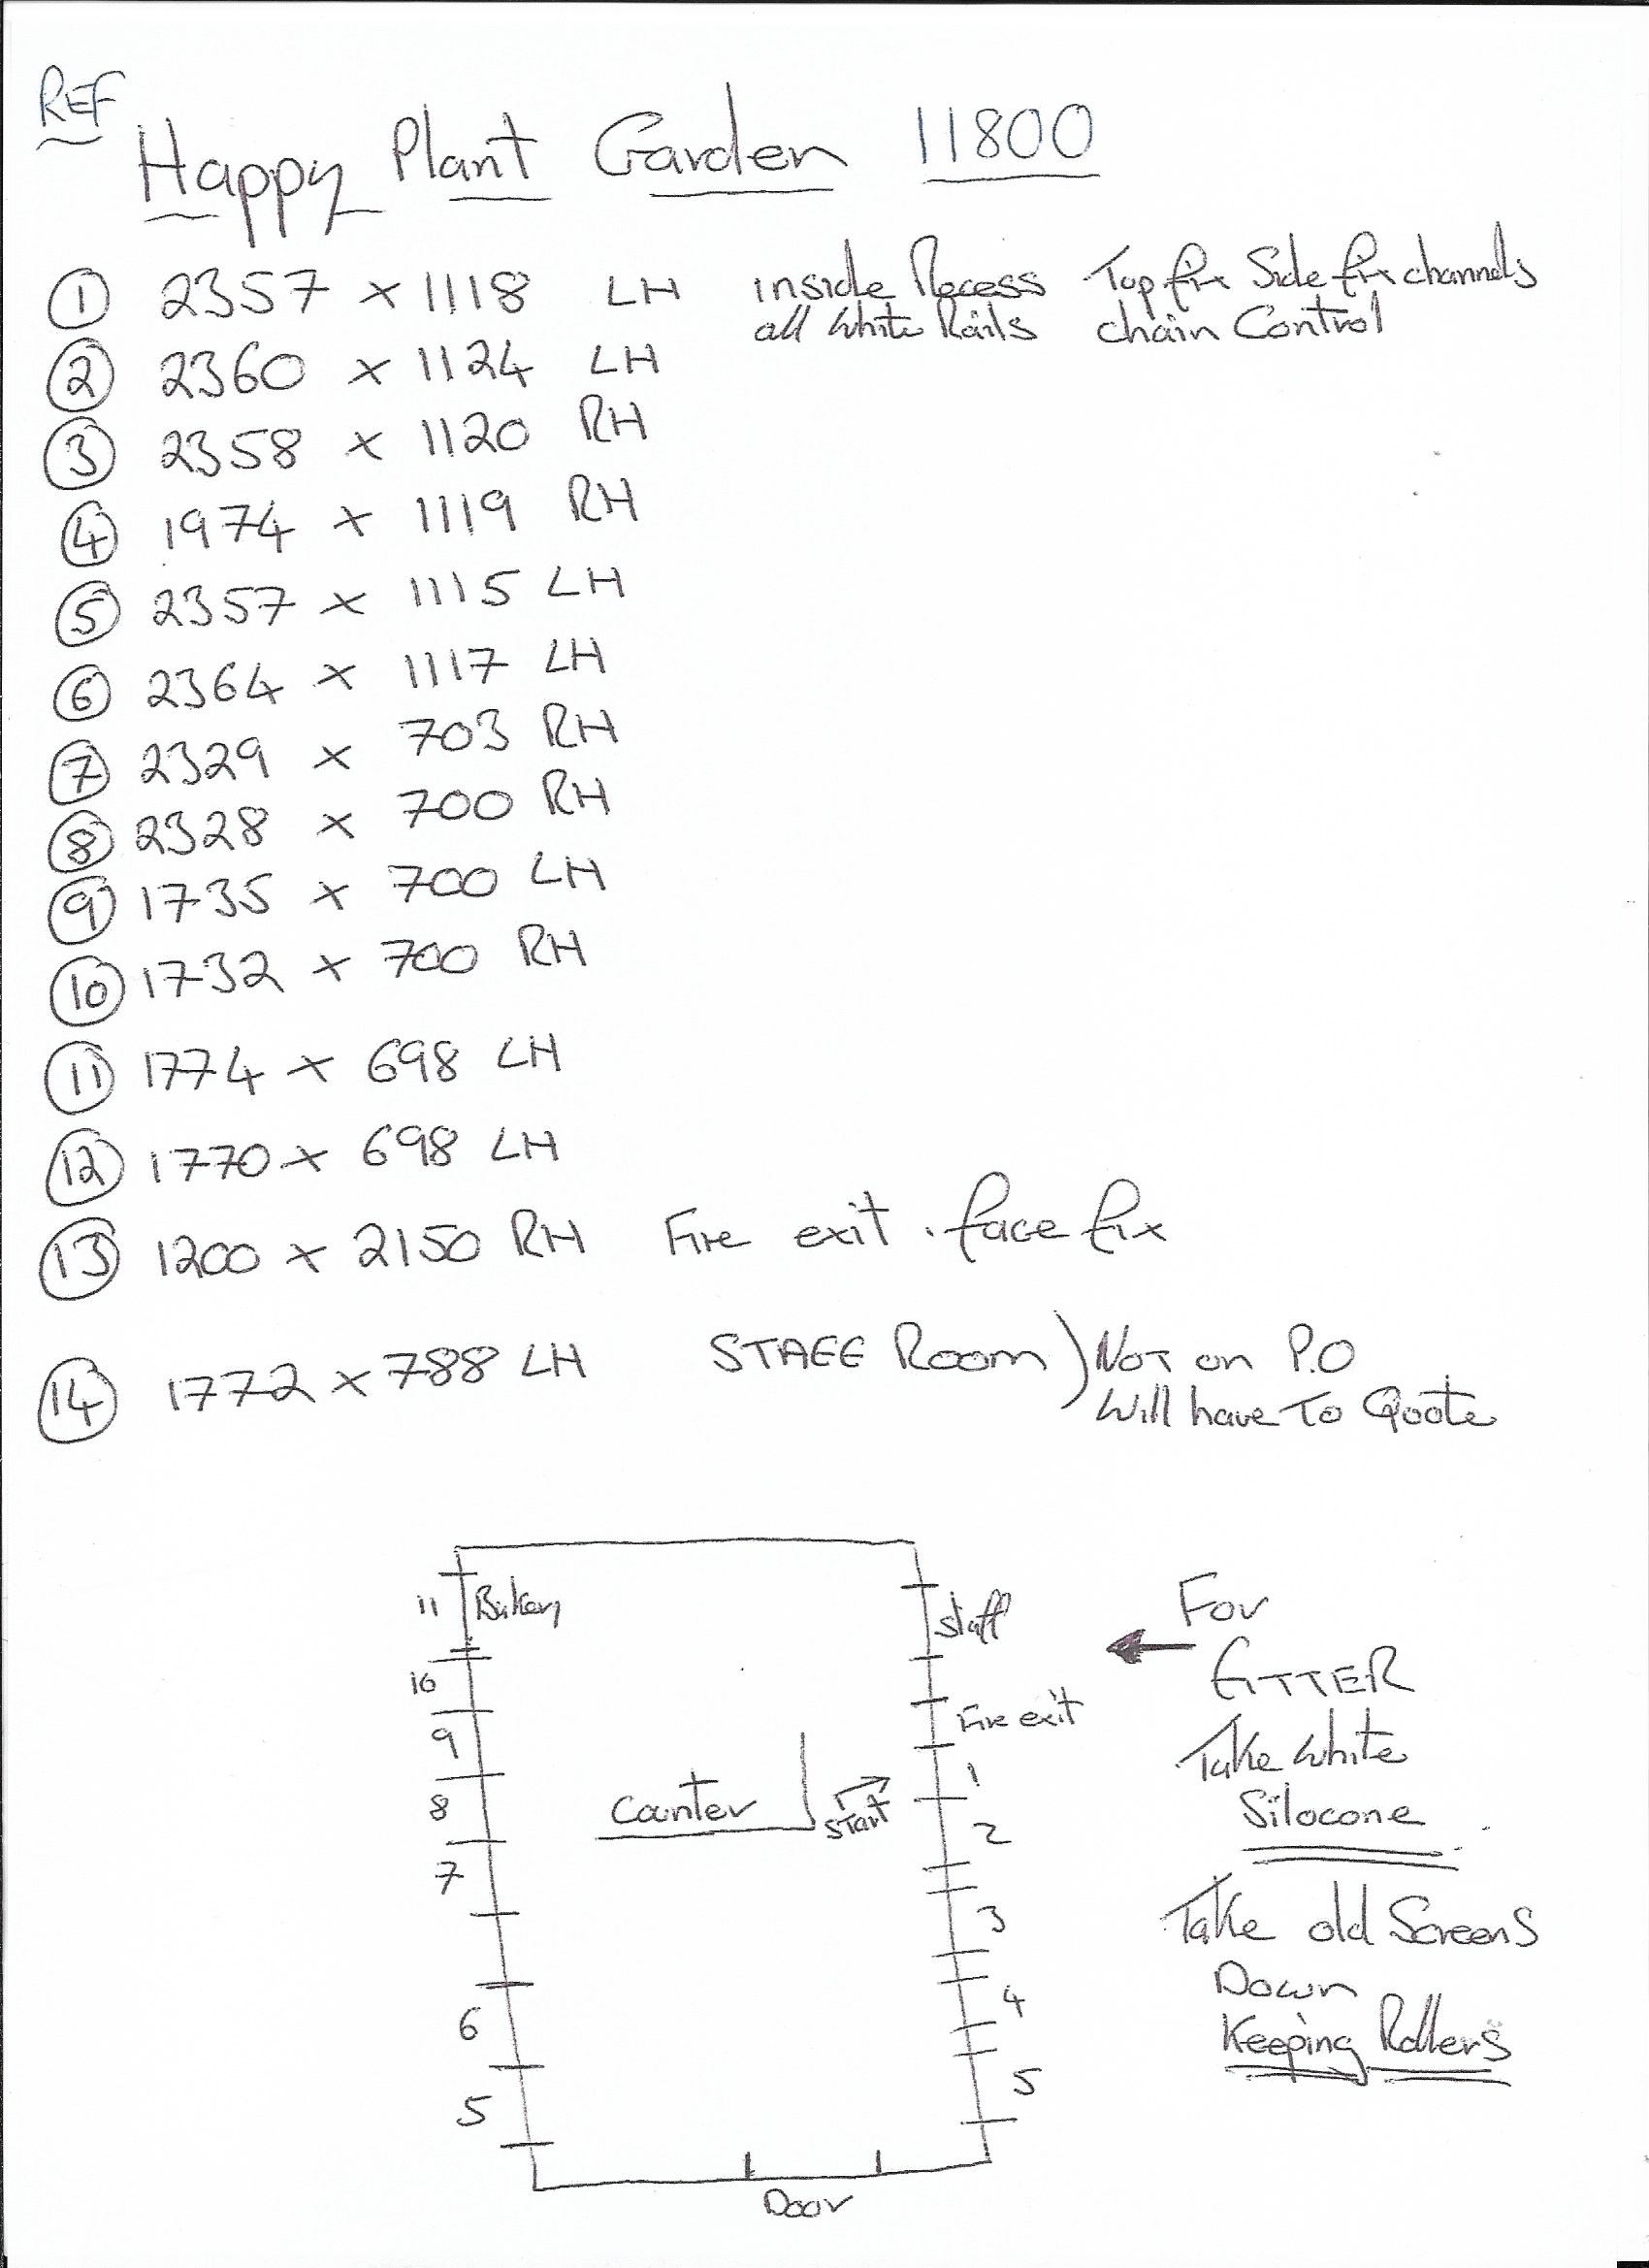 REF
Happy Plant Garden 11800
① 2357 x 1118 LH inside Recess Top fix Side fix channels
all white Rails chain Control
② 2360 x 1124 LH
③ 2358 x 1120 RH
④ 1974 x 1119 RH
⑤ 2357 x 1115 LH
⑥ 2364 x 1117 LH
⑦ 2329 x 703 RH
⑧ 2328 x 700 RH
⑨ 1735 x 700 LH
⑩ 1732 x 700 RH
⑪ 1774 x 698 LH
⑫ 1770 x 698 LH
⑬ 1200 x 2150 RH Fire exit . face fix
⑭ 1772 x 788 LH STAFF Room ) NOT on P.O
Will have To Qoote
11 Bakery
10
9
8
7
6
5
Counter
Start
Staff
Fire exit
1
2
3
4
5
Door
For
FITTER
Take white
Silocone
Take old Screens
Down
Keeping Rollers